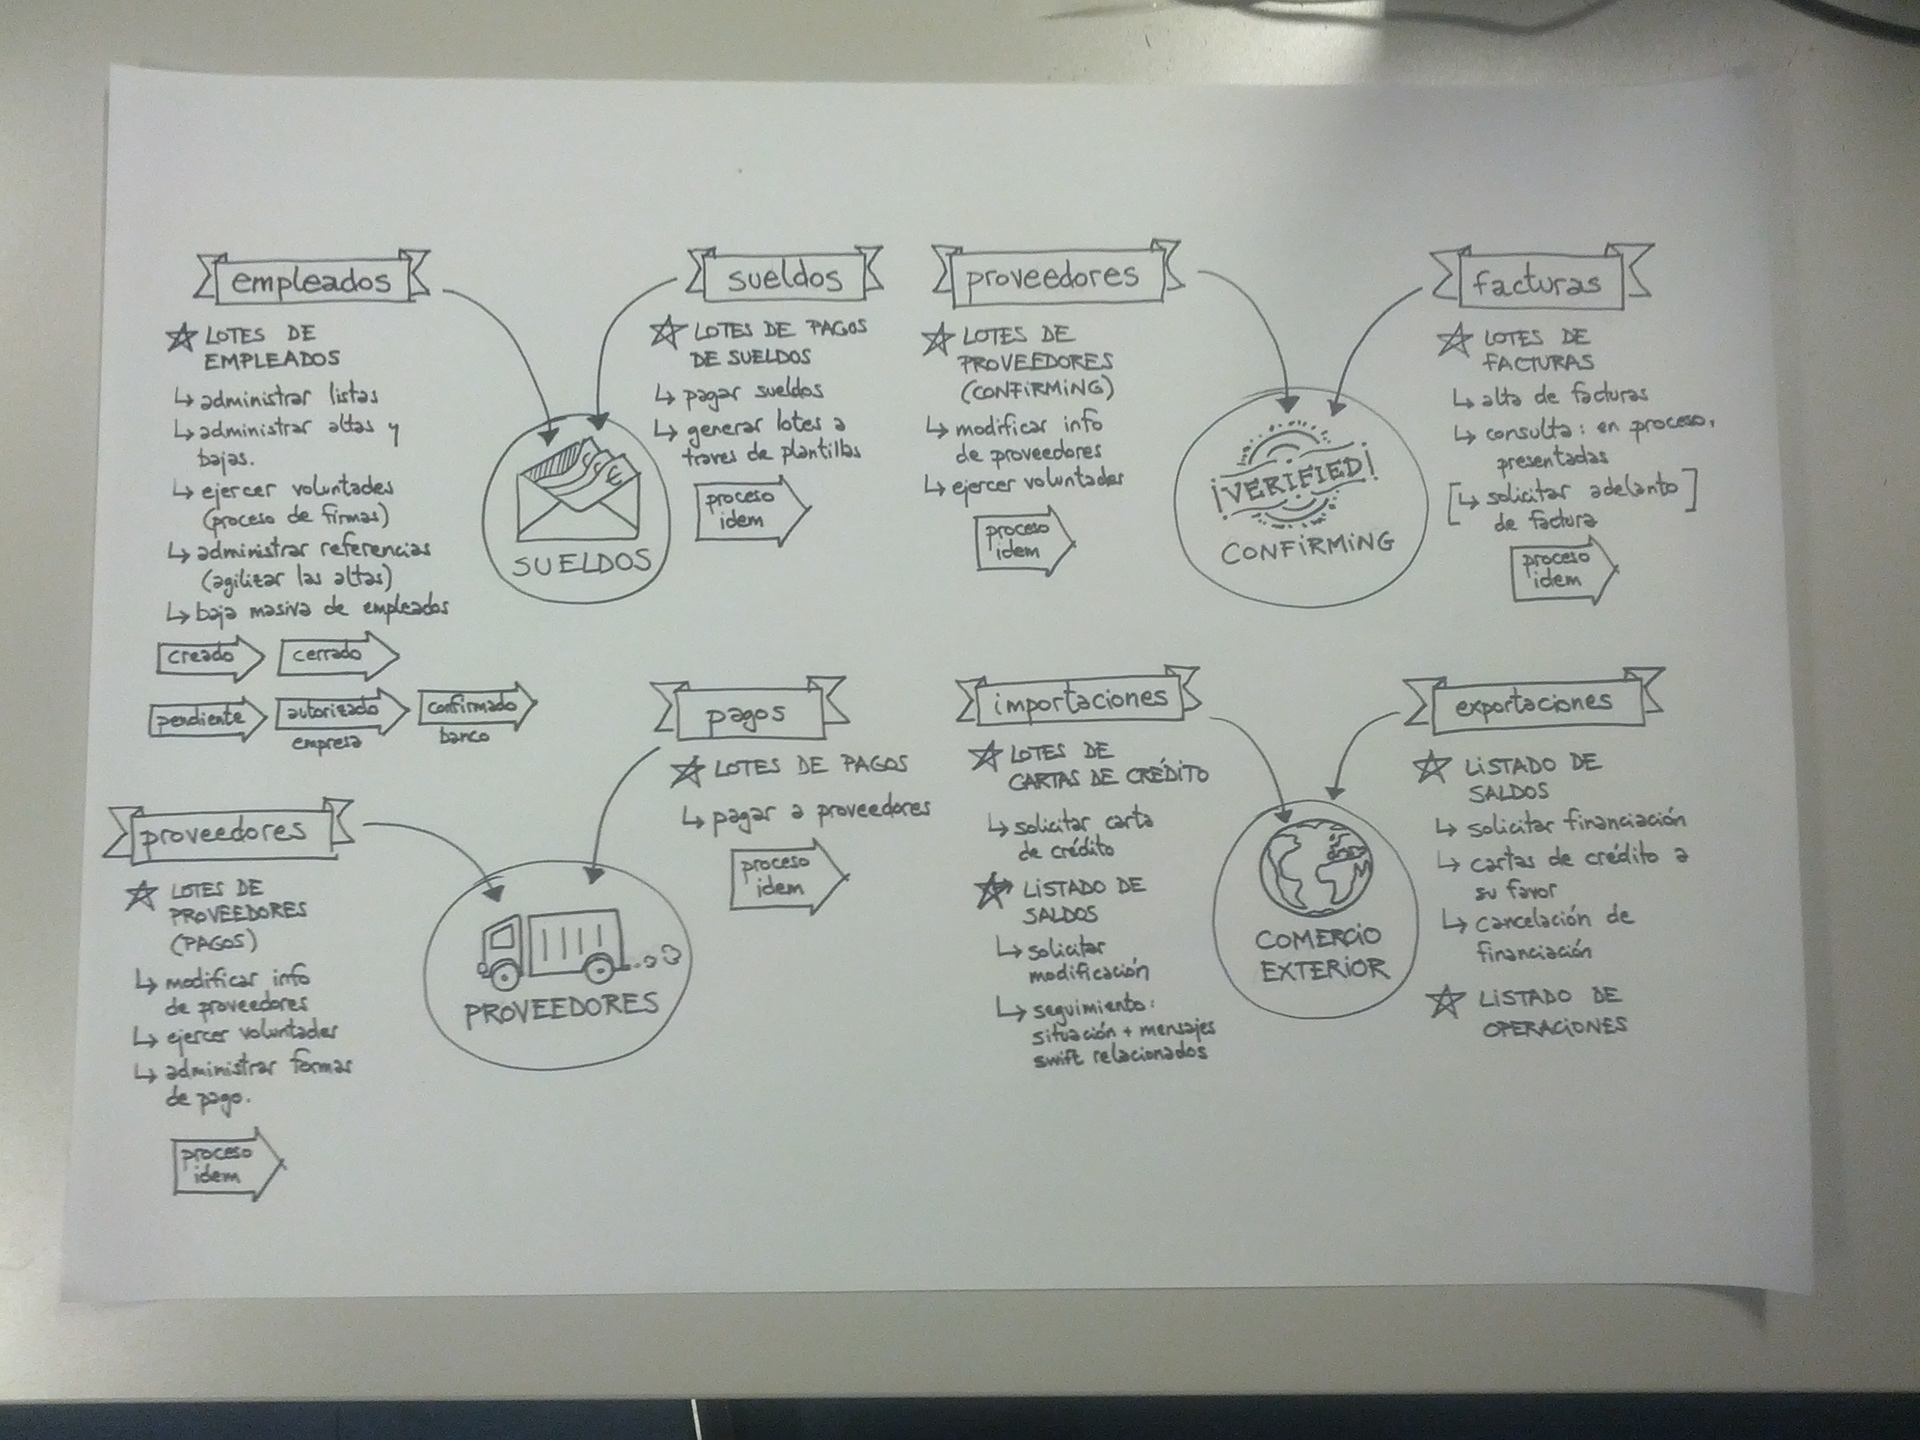 empleados
☆ LOTES DE
EMPLEADOS
↳ administrar listas
↳ administrar altas y
bajas.
↳ ejercer voluntades
(proceso de firmas)
↳ administrar referencias
(agilizar las altas)
↳ baja masiva de empleados
creado
cerrado
pendiente
autorizado
empresa
confirmado
banco
€
SUELDOS
sueldos
☆ LOTES DE PAGOS
DE SUELDOS
↳ pagar sueldos
↳ generar lotes a
traves de plantillas
proceso
idem
proveedores
☆ LOTES DE
PROVEEDORES
(CONFIRMING)
↳ modificar info
de proveedores
↳ ejercer voluntades
proceso
idem
¡VERIFIED!
CONFIRMING
facturas
☆ LOTES DE
FACTURAS
↳ alta de facturas
↳ consulta: en proceso,
presentadas
[↳ solicitar adelanto]
de factura
proceso
idem
proveedores
☆ LOTES DE
PROVEEDORES
(PAGOS)
↳ modificar info
de proveedores
↳ ejercer voluntades
↳ administrar formas
de pago.
proceso
idem
PROVEEDORES
pagos
☆ LOTES DE PAGOS
↳ pagar a proveedores
proceso
idem
importaciones
☆ LOTES DE
CARTAS DE CRÉDITO
↳ solicitar carta
de crédito
☆ LISTADO DE
SALDOS
↳ solicitar
modificación
↳ seguimiento:
situación + mensajes
swift relacionados
COMERCIO
EXTERIOR
exportaciones
☆ LISTADO DE
SALDOS
↳ solicitar financiación
↳ cartas de crédito a
su favor
↳ cancelación de
financiación
☆ LISTADO DE
OPERACIONES